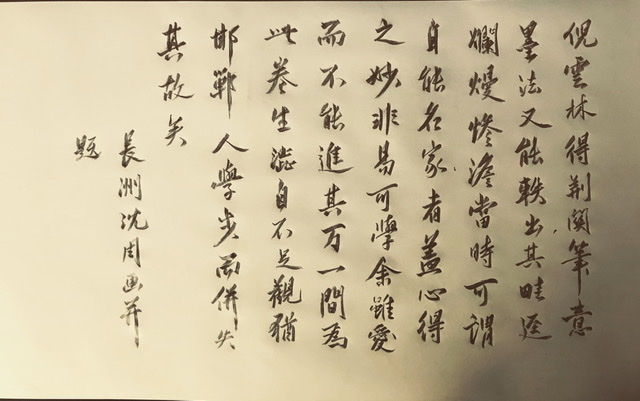 倪雲林得荆関筆意
墨法又能軼出其畦逕
爛熳惨澹當時可謂
自能名家者蓋心得
之妙非易可學余雖愛
而不能進其万一間為
此卷生澁自不足觀猶
邯鄲人學步而併失
其故矣
長洲沈周画并
題